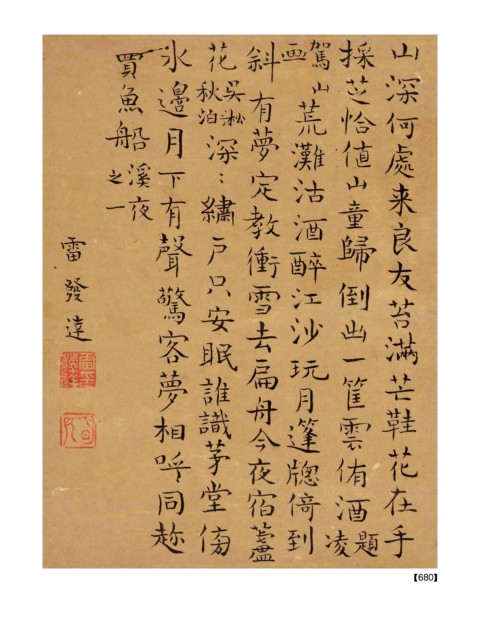 山深何處来良友苔滿芒鞋花在手
採芝恰值山童歸倒出一筐雲侑酒題凌
駕山画荒灘沽酒醉江沙玩月篷牎倚到
斜有夢定教衝雪去扁舟今夜宿蘆
花吳淞秋泊深〻繡戶只安眠誰識茅堂傍
水邊月下有聲驚客夢相呼同趂
買魚船溪夜之一
雷發達
【680】